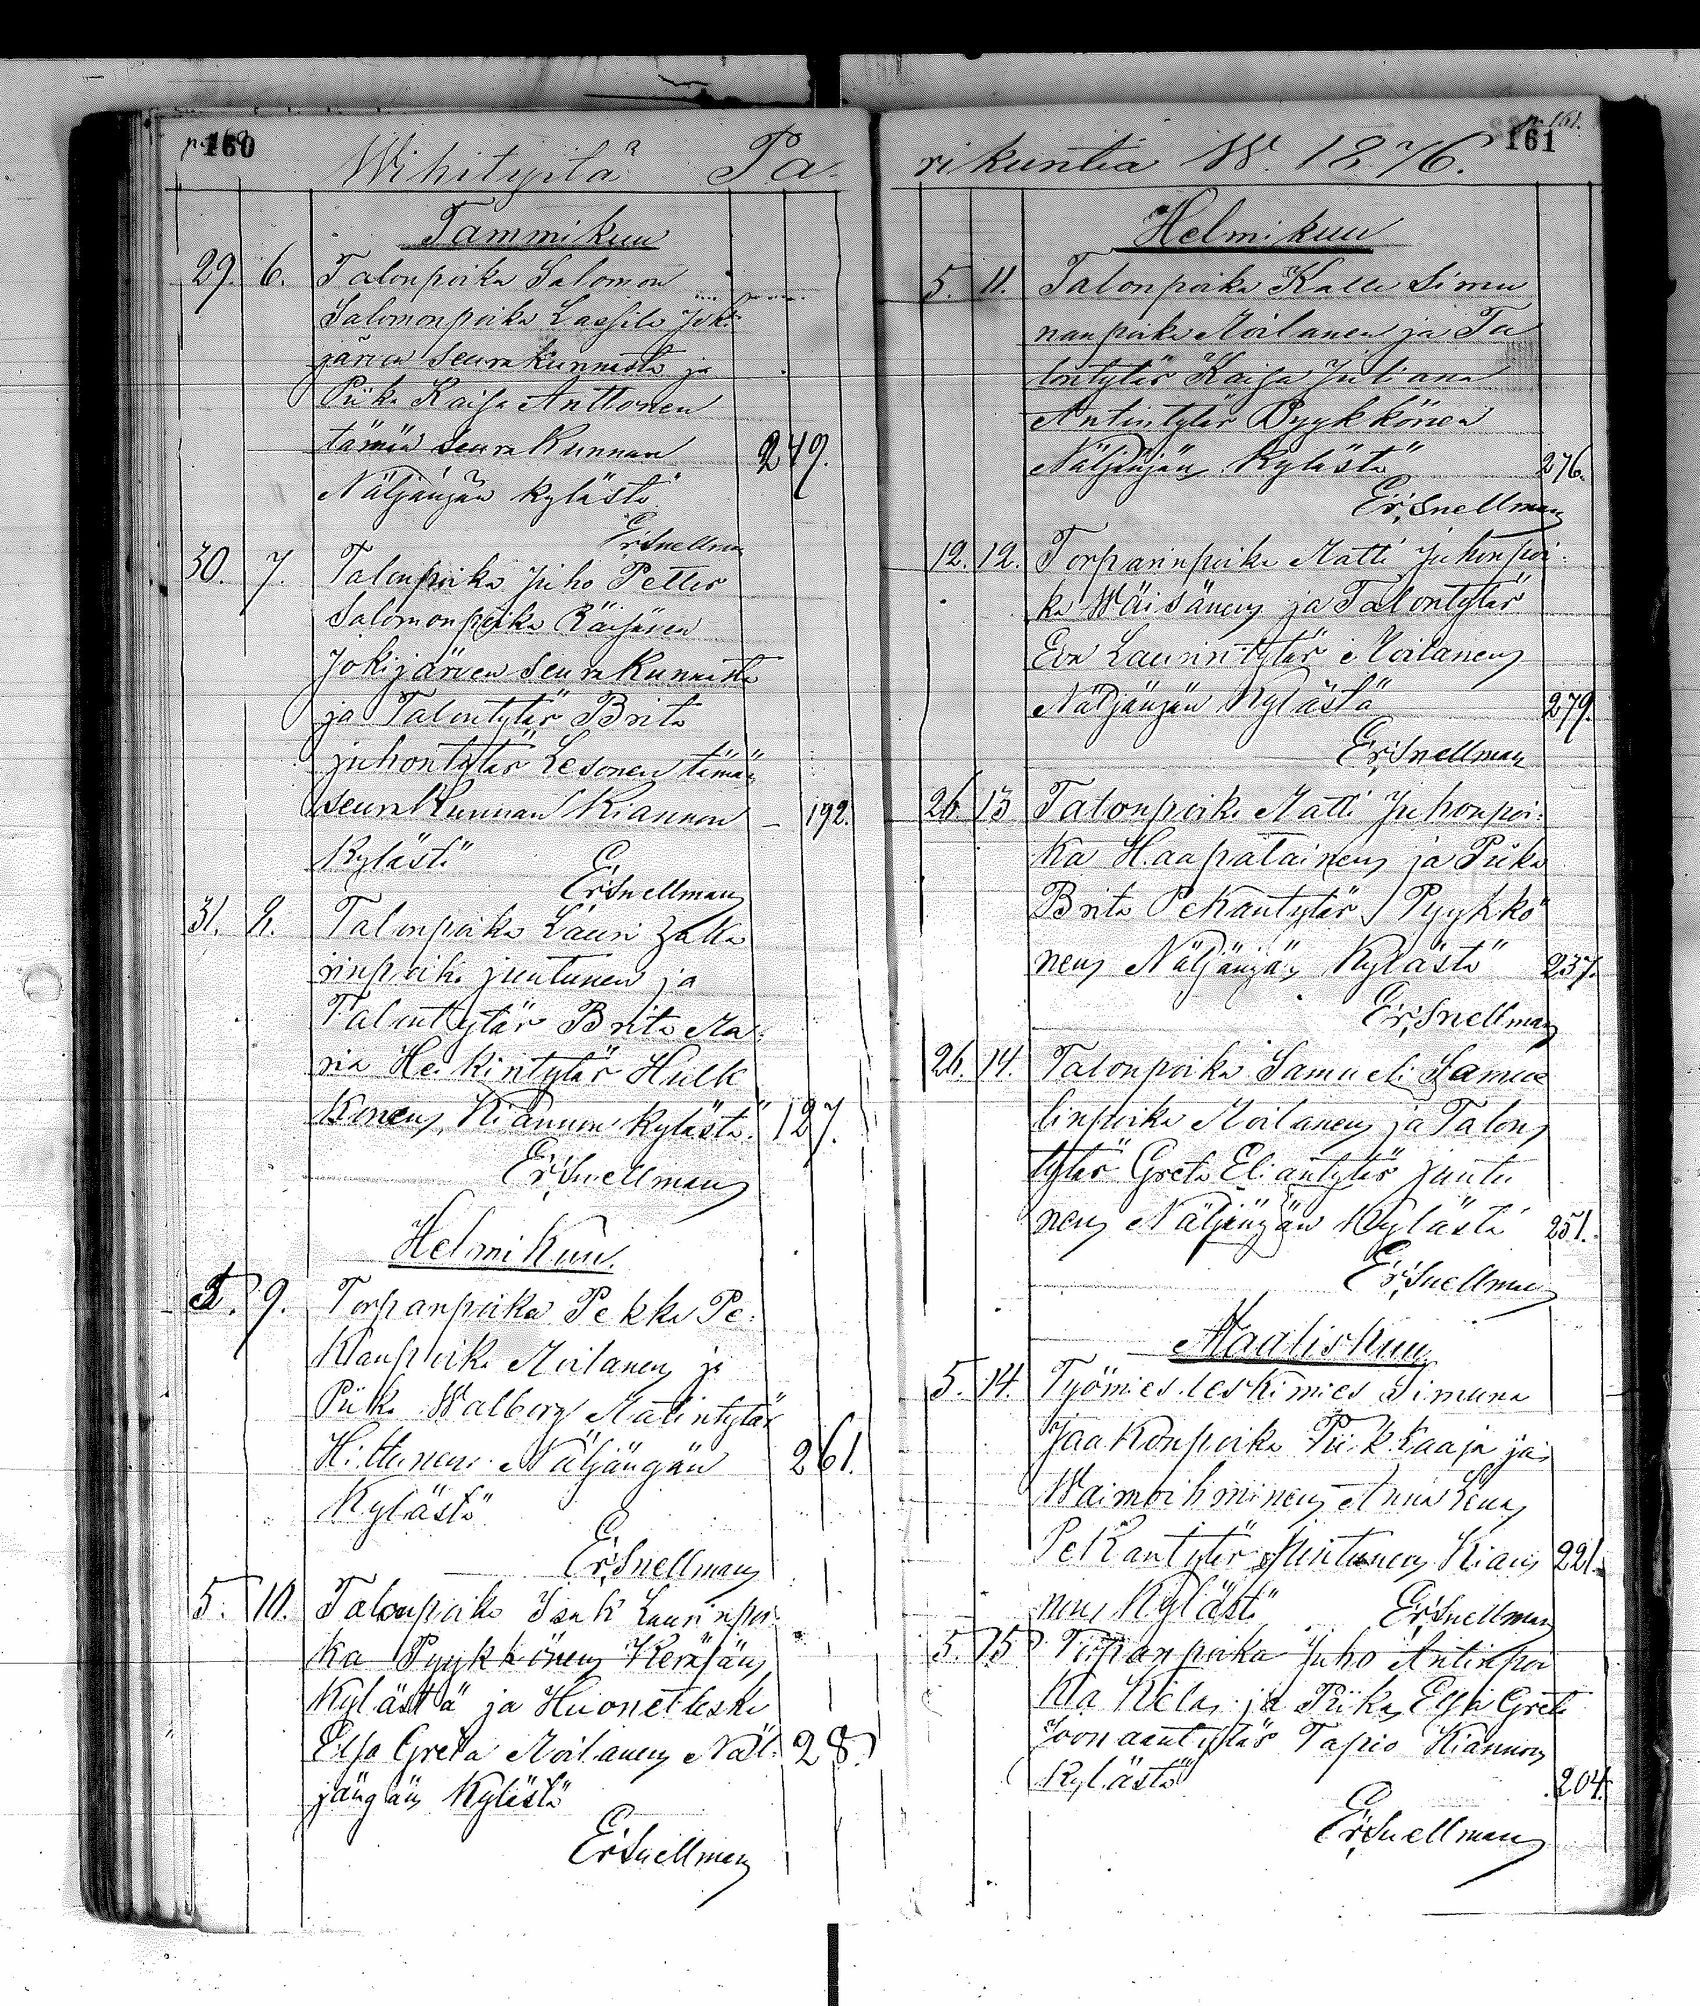 160
Wihityitä Pa-
Tammikuu
29. 6. Talonpoika Salomon
Salomonpoika Lassila Joki
järven seurakunnasta ja
Piika Kaisa Anttonen
tämän seurakunnan 249.
Näljängän kylästä
Er. Snellman
30. 7. Talonpoika Juho Petter
Salomonpoika Räisänen
Jokijärven seurakunnasta
ja Talontytär Brita
juhontytär Lesonen tämän
seurakunnan Kiannon 192.
Kylästä
Er. Snellman
31. 8. Talonpoika Lauri Zakka
rinpoika juntunen ja
Talontytär Brita Ma-
ria Heikintytär Hulk
konen, Kiannon kylästä. 127.
Er. Snellman
Helmikuu.
5. 9. Torpanpoika Pekka Pe-
kanpoika Moilanen ja
Piika Walborg Matintytär
Hiltunen Näljängän 261.
Kylästä
Er. Snellman
5. 10. Talonpoika Isak Laurinpoi-
ka Pyykkönen Keräjän
Kylästä ja Huonetleski
Elsa Greta Moilanen Näl- 28.
jängän Kylästä
Er. Snellman
p. 161.
161
rikuntia W. 1876.
Helmikuu
5. 11. Talonpoika Kalle Simu
nanpoika Moilanen ja Ta
lontytär Kaisa Juliana
Antintytär Pyykkönen
Näljängän Kylästä 276.
Er. Snellman
12. 12. Torparinpoika Matti Juhonpoi-
ka Wäisänen ja Talontytär
Eva Laurintytär Moilanen
Näljängän Kylästä 279.
Er. Snellman
26. 13 Talonpoika Matti Juhonpoi-
ka Haapalainen ja Piika
Brita Pekantytär Pyykkö
nen Näljängän Kylästä 237.
Er. Snellman
26. 14. Talonpoika Samueli Samue
linpoika Moilanen ja Talon
tytär Greta Eliantytär juntu
nen Näljängän Kylästä 251.
Er. Snellman
Maaliskuu
5. 14. Työmies leskimies Simuna
Jaakonpoika ja
Waimoihminen Anna Lena
Pekantytär Juntunen Kian 221.
non Kylästä Er. Snellman
5. 15 Torpanpoika Juho Antinpoi
ka Kela ja Piika Elsa Greta
Joonaantytär Tapio Kiannon
Kylästä 204.
Er. Snellman